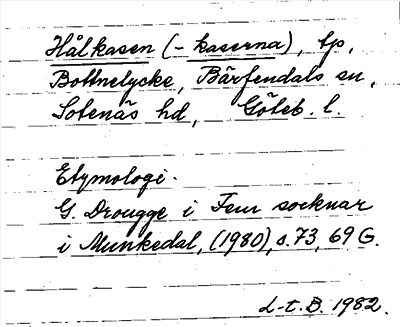 Hålkasen (-kaserna), tp,
Bottnelycke, Bärfendals sn,
Sotenäs hd, Göteb. l.
Etymologi.
G. Drougge i Fem socknar
i Munkedal, (1980), s. 73, 69 G.
L-t. B. 1982.